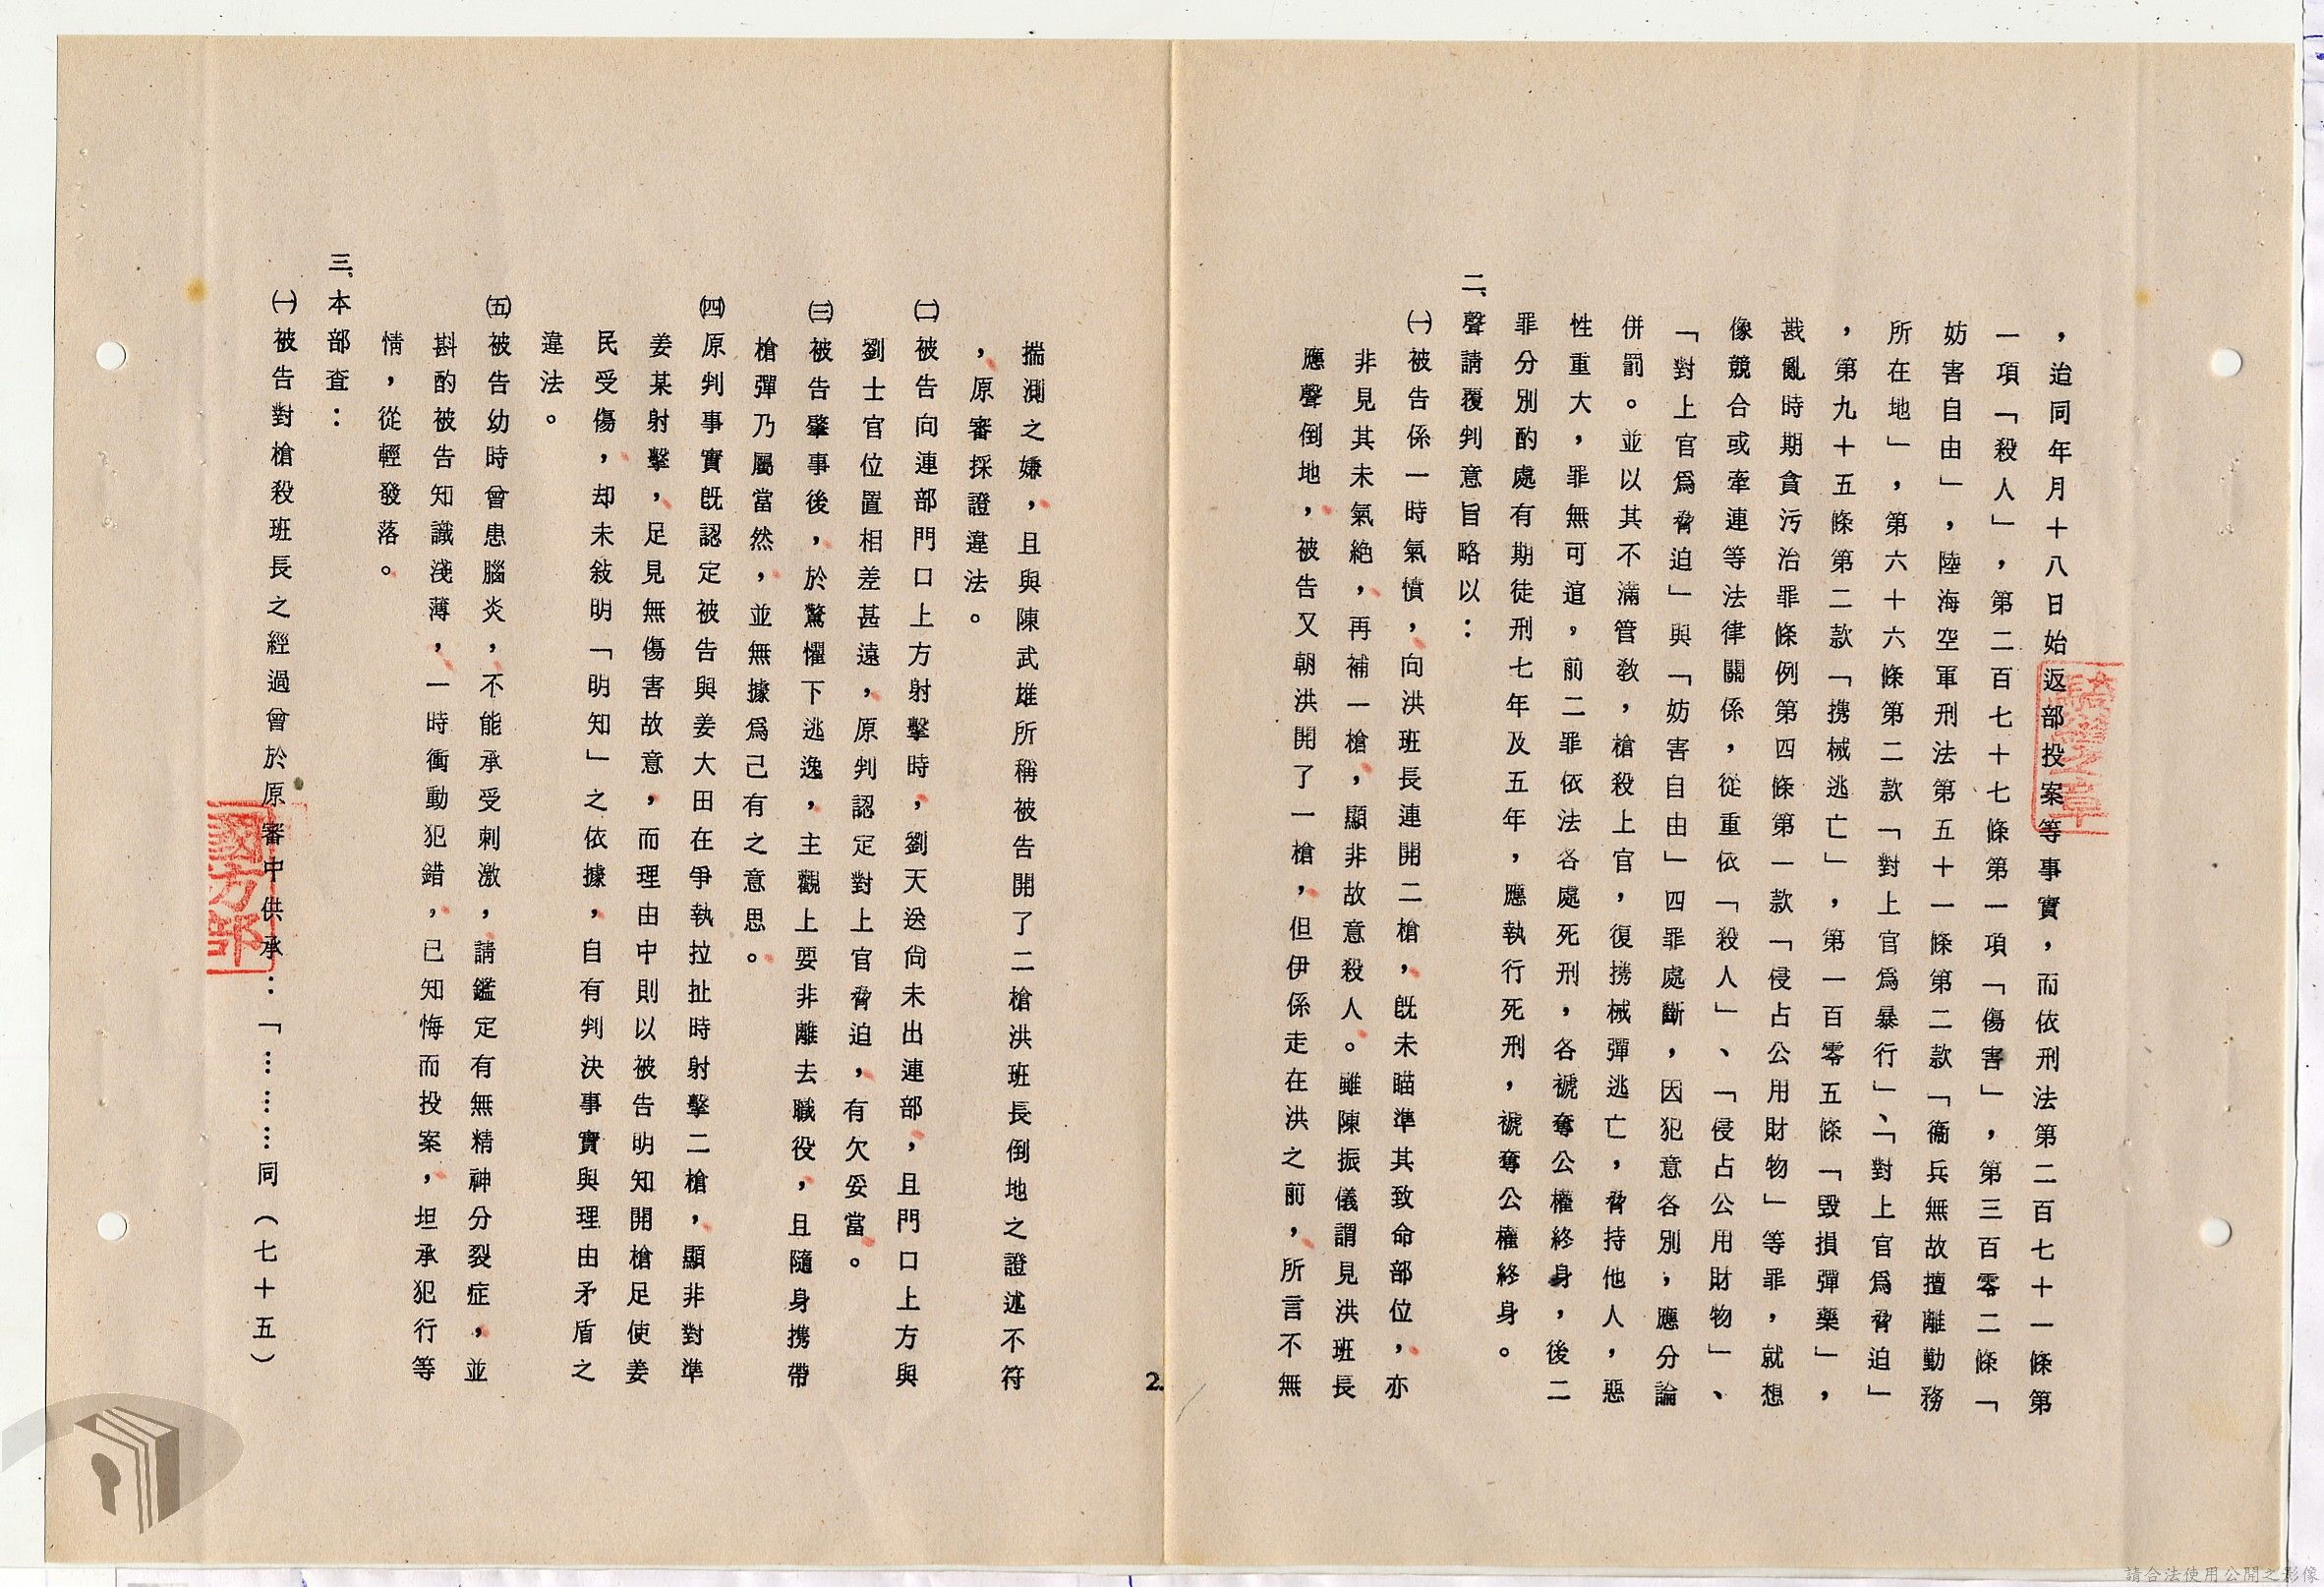 ，迨同年月十八日始返部投案等事實，而依刑法第二百七十一條第
一項「殺人」，第二百七十七條第一項「傷害」，第三百零二條「
妨害自由」，陸海空軍刑法第五十一條第二款「衞兵無故擅離勤務
所在地」，第六十六條第二款「對上官爲暴行」、「對上官爲脅迫」
，第九十五條第二款「携械逃亡」，第一百零五條「毀損彈藥」，
戡亂時期貪污治罪條例第四條第一款「侵占公用財物」等罪，就想
像競合或牽連等法律關係，從重依「殺人」、「侵占公用財物」、
「對上官爲脅迫」與「妨害自由」四罪處斷，因犯意各別，應分論
併罰。並以其不滿管敎，槍殺上官，復携械彈逃亡，脅持他人，惡
性重大，罪無可逭，前二罪依法各處死刑，各褫奪公權終身，後二
罪分別酌處有期徒刑七年及五年，應執行死刑，褫奪公權終身。
二、聲請覆判意旨略以：
㈠被告係一時氣憤，向洪班長連開二槍，旣未瞄準其致命部位，亦
非見其未氣絶，再補一槍，顯非故意殺人。雖陳振儀謂見洪班長
應聲倒地，被告又朝洪開了一槍，但伊係走在洪之前，所言不無
2.
揣測之嫌，且與陳武雄所稱被告開了二槍洪班長倒地之證述不符
，原審採證違法。
㈡被告向連部門口上方射擊時，劉天送尙未出連部，且門口上方與
劉士官位置相差甚遠，原判認定對上官脅迫，有欠妥當。
㈢被告肇事後，於驚懼下逃逸，主觀上要非離去職役，且隨身携帶
槍彈乃屬當然，並無據爲己有之意思。
㈣原判事實旣認定被告與姜大田在爭執拉扯時射擊二槍，顯非對準
姜某射擊，足見無傷害故意，而理由中則以被告明知開槍足使姜
民受傷，却未敍明「明知」之依據，自有判決事實與理由矛盾之
違法。
㈤被告幼時曾患腦炎，不能承受刺激，請鑑定有無精神分裂症，並
斟酌被告知識淺薄，一時衝動犯錯，已知悔而投案，坦承犯行等
情，從輕發落。
三、本部査：
㈠被告對槍殺班長之經過曾於原審中供承：「………同（七十五）
國方部
請合法使用公開之影像